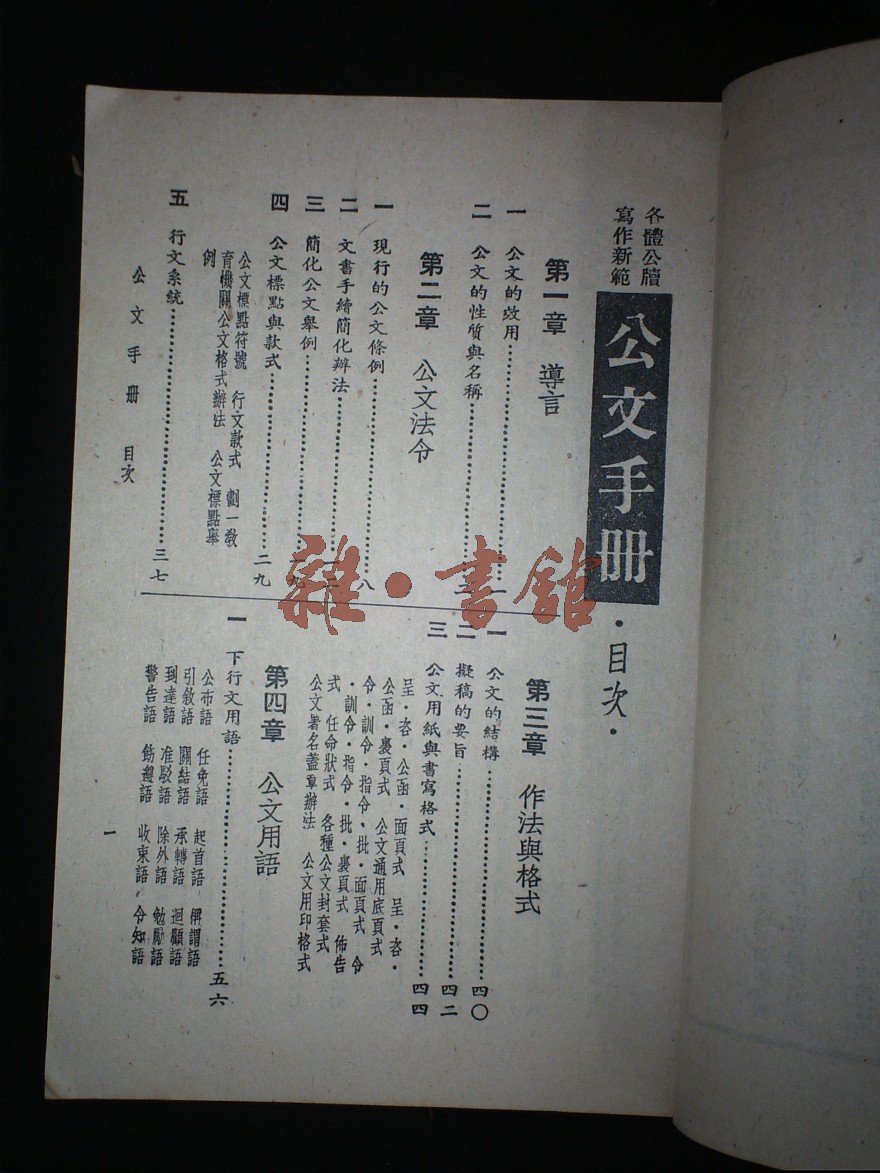 各體公牘
寫作新範
公文手冊
·目次·
第一章 導言
一 公文的效用
二 公文的性質與名稱
第二章 公文法令
一 現行的公文條例……八
二 文書手續簡化辦法
三 簡化公文舉例
四 公文標點與款式……二九
公文標點符號 行文款式 劃一教
育機關公文格式辦法 公文標點舉
例
五 行文系統……三七
第三章 作法與格式
一 公文的結構……四〇
二 擬稿的要旨……四二
三 公文用紙與書寫格式……四四
呈·咨·公函·面頁式 呈·咨·
公函·裏頁式 公文通用底頁式
令·訓令·指令·批·面頁式 令
·訓令·指令·批·裏頁式 佈告
式 任命狀式 各種公文封套式
公文署名蓋章辦法 公文用印格式
第四章 公文用語
一 下行文用語……五六
公布語 任免語 起首語 稱謂語
引敘語 關結語 承轉語 迴顧語
到達語 准駁語 除外語 勉勵語
警告語 飭遵語 收束語 令知語
公文手冊 目次
一
雜·書館